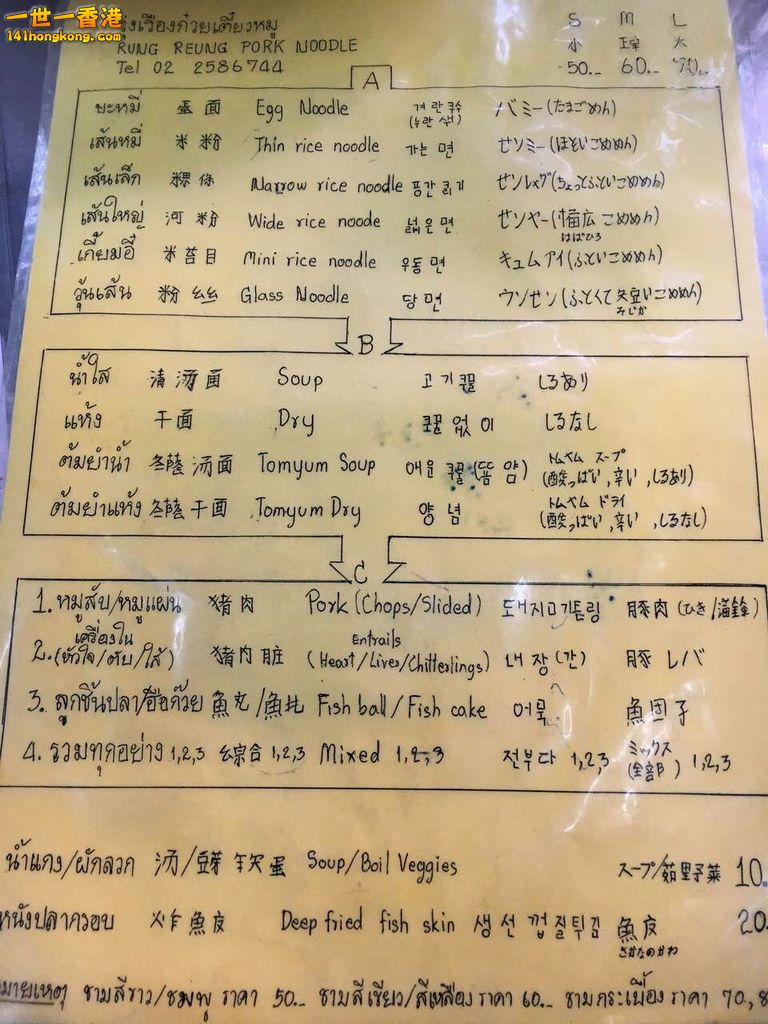 一世一香港
141hongkong.com
เรืองก๋วยเตี๋ยวหมู S M L
RUNG REUNG PORK NOODLE 小 大
Tel 02 2586744 50.- 60.- 70.-
A
บะหมี่ 蛋面 Egg Noodle バミー(たまごめん)
เส้นหมี่ 米粉 Thin rice noodle 가는 면 センミー(ほそいこめめん)
เส้นเล็ก 粿條 Narrow rice noodle (ちょっとふといこめめん)
เส้นใหญ่ 河粉 Wide rice noode 넓은면 センヤー(幅広こめめん)
はばひろ
เกี้ยมอี๋ 米苔目 Mini rice noodle 우동면 キュムアイ(ふといこめめん)
วุ้นเส้น 粉丝 Glass Noodle 당면 ウンセン(ふとくて いこめめん)
みじか
B
น้ำใส 清汤面 Soup 고기 しるあり
แห้ง 干面 Dry 없이 しるなし
ต้มยำน้ำ 冬蔭汤面 Tomyum Soup (똠얌) トムヤム スープ
(酸っぱい,辛い,しるあり)
ต้มยำแห้ง 冬蔭干面 Tomyum Dry 양념 トムヤム ドライ
(酸っぱい,辛い,しるなし)
C
1. หมูสับ/หมูแผ่น 猪肉 Pork (Chops/Slided) 豚肉 (ひき/
เครื่องใน Entrails
2. (หัวใจ/ตับ/ไส้) 猪肉脏 (Heart/Liver/Chitterlings) 내장(간) 豚 レバ
3. ลูกชิ้นปลา/ฮือก๊วย 魚丸/魚 Fish ball/Fish cake 어묵 魚団子
4. รวมทุกอย่าง 1,2,3 綜合 1,2,3 Mixed 1,2,3 전부다 1,2,3 ミックス
(全部) 1,2,3
น้ำแกง/ผักลวก 汤/豆芽 蛋 Soup/Boil Veggies スープ/茹野菜 10.
หนังปลากรอบ 炸魚皮 Deep fried fish skin 생선 껍질튀김 魚皮 20.
さかなのかわ
มายเหตุ ชามสีขาว/ชมพู ราคา 50.- ชามสีเขียว/สีเหลือง ราคา 60.- ชามกระเบื้อง ราคา 70,8